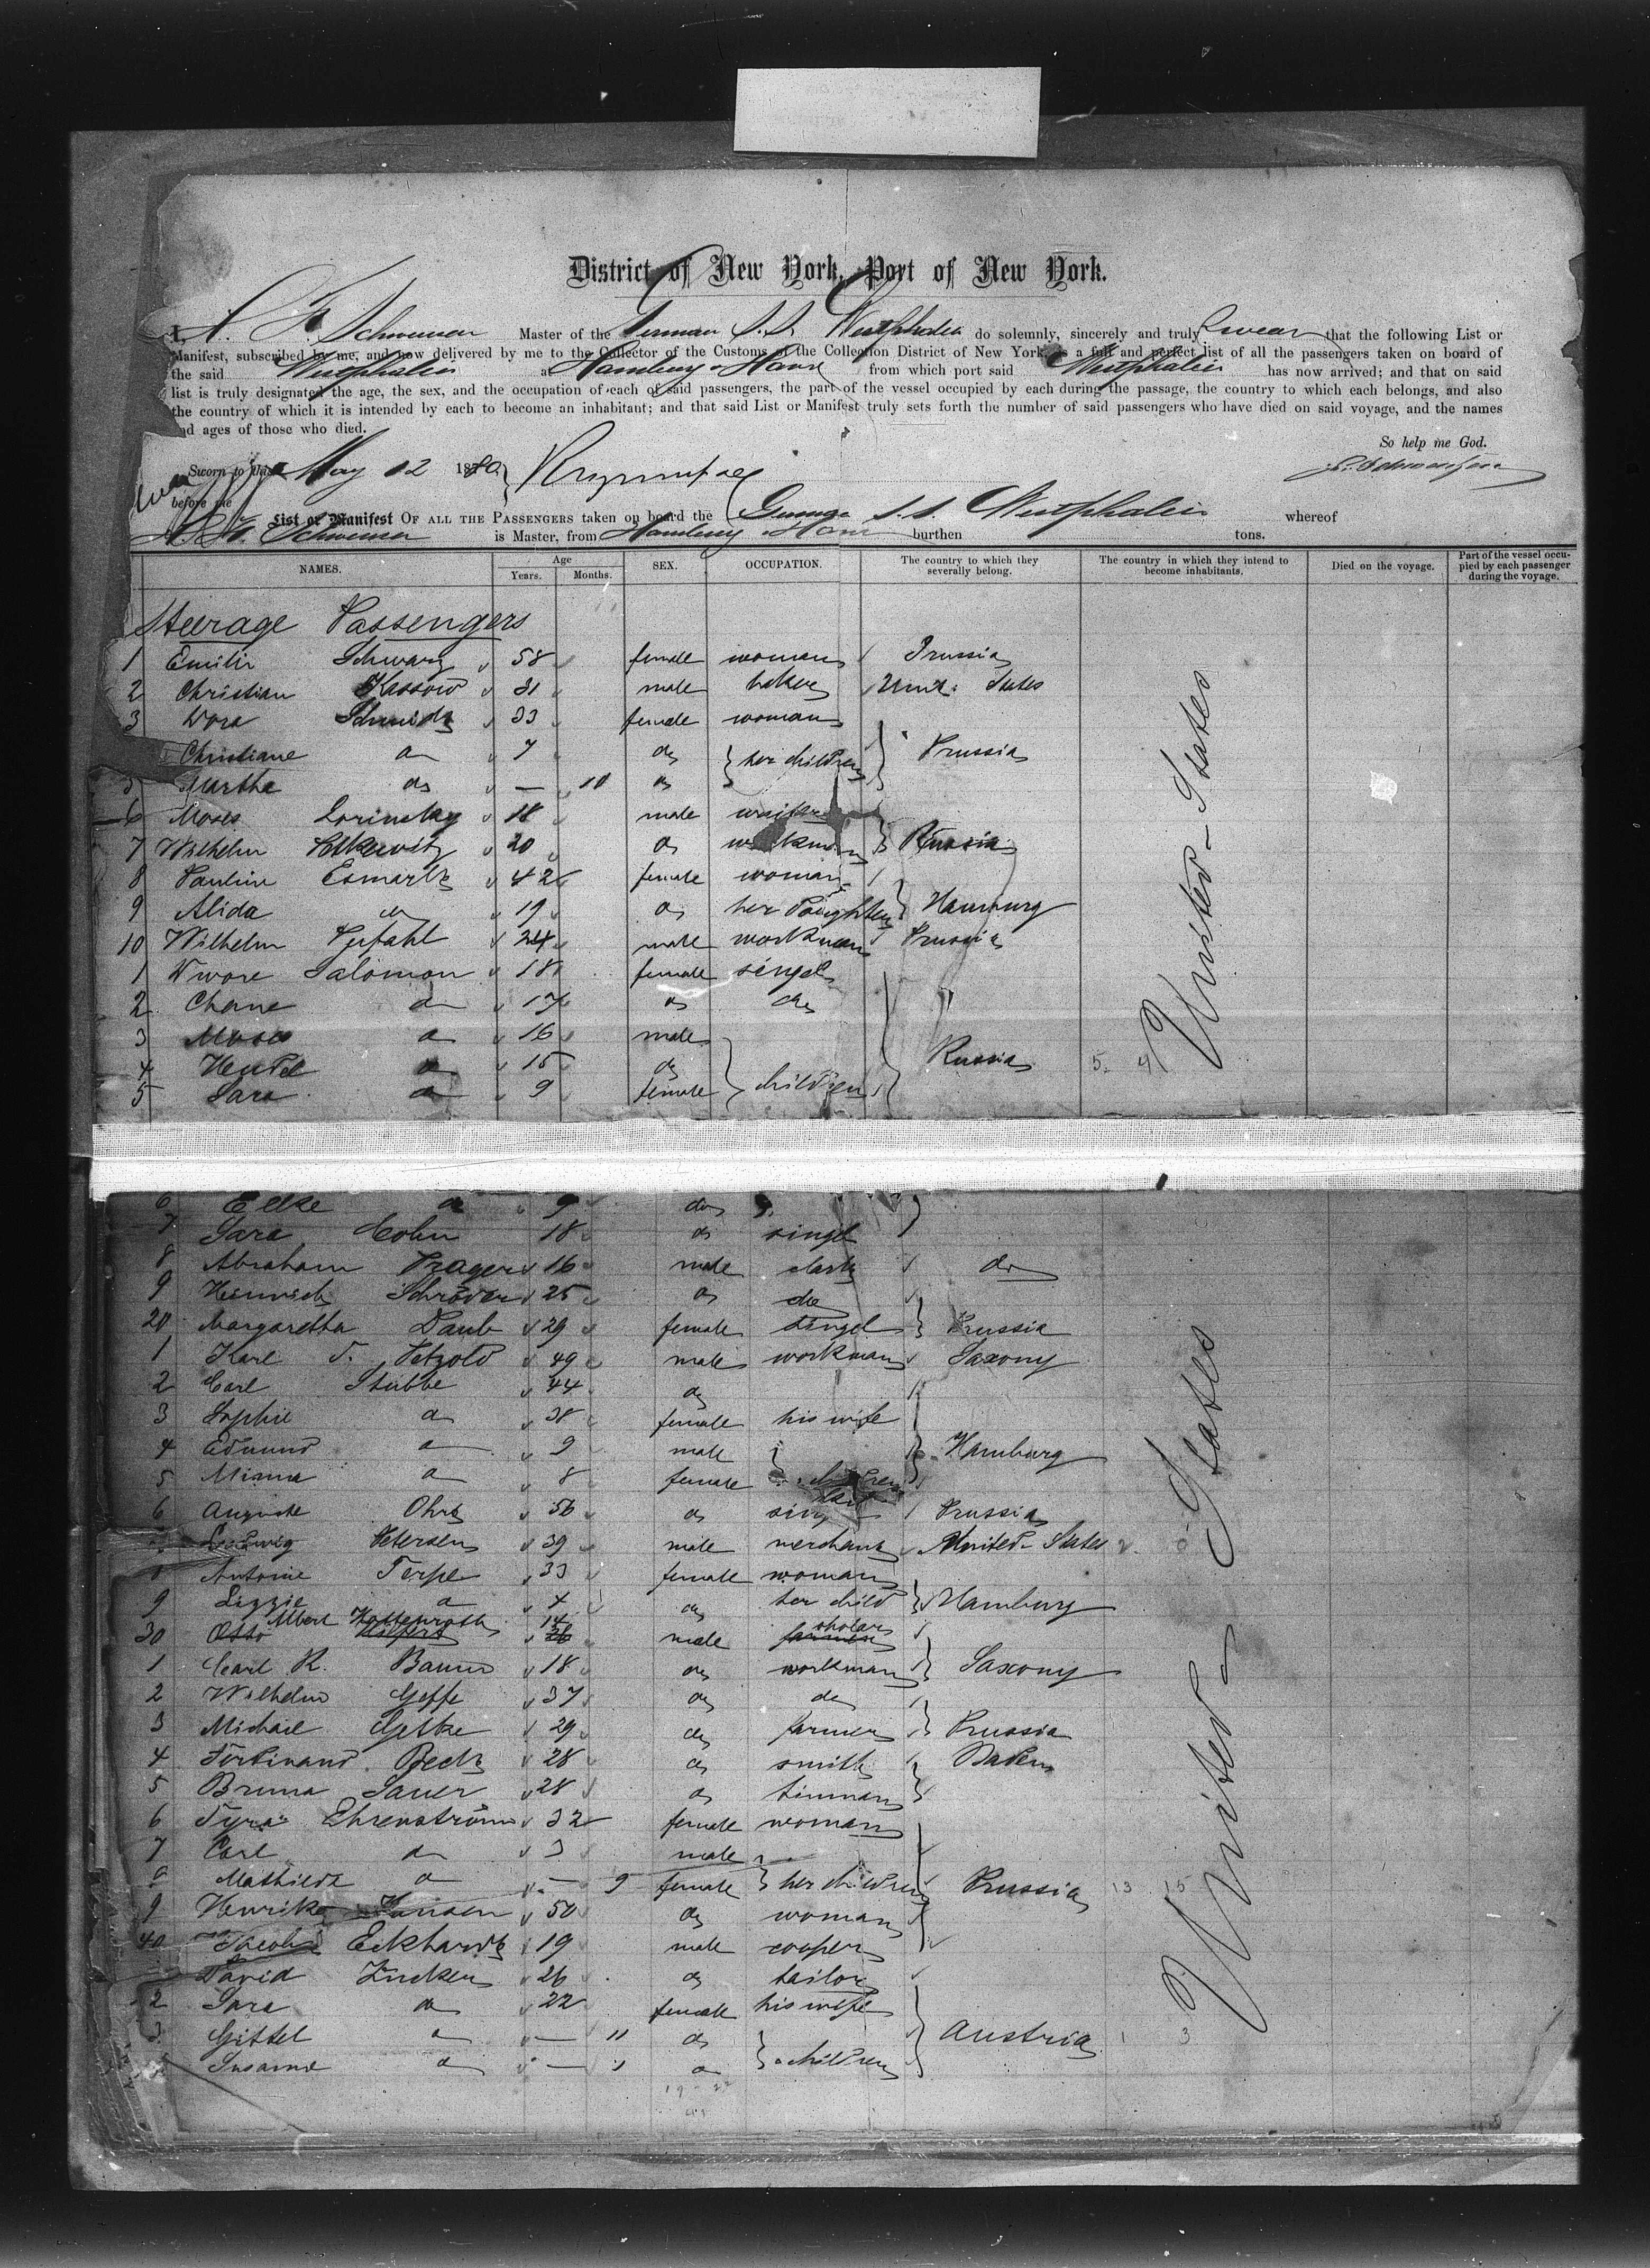 District of New York, Port of New York.
I, A. F. Schwensen Master of the German S.S. Westphalia do solemnly, sincerely and truly swear that the following List or
Manifest, subscribed by me, and now delivered by me to the Collector of the Customs of the Collection District of New York, is a full and perfect list of all the passengers taken on board of
the said Westphalia at Hamburg & Havre from which port said Westphalia has now arrived; and that on said
list is truly designated the age, the sex, and the occupation of each of said passengers, the part of the vessel occupied by each during the passage, the country to which each belongs, and also
the country of which it is intended by each to become an inhabitant; and that said List or Manifest truly sets forth the number of said passengers who have died on said voyage, and the names
and ages of those who died.
So help me God.
Sworn to this May 12 1880
before me
List or Manifest OF ALL THE PASSENGERS taken on board the German S.S. Westphalia whereof
A. F. Schwensen is Master, from Hamburg & Havre burthen tons.
NAMES. Age Years. Months. SEX. OCCUPATION. The country to which they severally belong. The country in which they intend to become inhabitants. Died on the voyage. Part of the vessel occupied by each passenger during the voyage.
Steerage Passengers
1 Emilie Schwarz 58 female woman Prussia
2 Christian Kassow 31 male baker Unit. States
3 Dora Schmidt 33 female woman
Christiane do 7 do her children Prussia
5 Martha do — 10 do
6 Moses Lorinsky 18 male
7 Wilhelm 20 do workman Russia
8 Pauline Esmark 42 female woman
9 Alida do 19 do her daughter Hamburg
10 Wilhelm Tufahl 24 male workman Prussia
1 Salomon 18 female singel
2 Chane do 17 do do
3 Moses do 16 male
4 do 15 do Russia
5 Sara do 9 female children
United States
6 Elke do 9 do
7 Sara Cohn 18 do singel
8 Abraham Prager 16 male clerk do
9 Heinrich Schröder 25 do do
20 Margaretha Daub 29 female singel Prussia
1 Karl Petzold 49 male workman Saxony
2 Carl Stubbe 44 do
3 Sophie do 38 female his wife
4 Edmund do 9 male Hamburg
5 Minna do 8 female children
6 Auguste Ohrt 56 do Prussia
Ludwig Petersen 39 male merchant United States
Antonie Terpe 33 female woman
9 Lizzie do 4 do her child Hamburg
Albert Kottenroth 14 scholar
30 Otto male farmer
1 Carl R. Baum 18 do workman Saxony
2 Wilhelm Geffe 37 do do
3 Michael Gelke 29 do farmer Prussia
4 Ferdinand Beck 28 do smith Baden
5 Bruna Sauer 28 do tinman
6 Tyra Ehrenström 32 female woman
7 Carl do 3 male
8 Mathilde do — 9 female her children Prussia 13 15
9 Henrike Hansen 50 do woman
40 Jacob Eckhardt 19 male cooper
David Zucker 26 do tailor
2 Sara do 22 female his wife
3 Gittel do — 11 do Austria 1 3
Susanne do — do children
United States